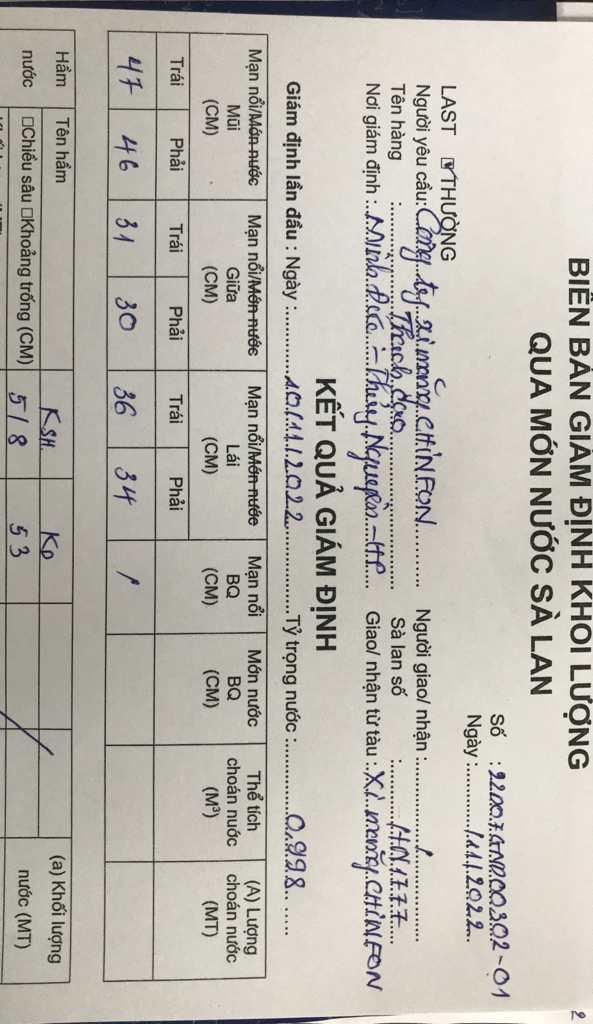 2
BIÊN BẢN GIÁM ĐỊNH KHỐI LƯỢNG
QUA MỚN NƯỚC SÀ LAN
Số : 22007GNP.00302-01
Ngày :............/11/2022..
LAST ☑THƯỜNG
Người yêu cầu: Công ty xi măng CHINFON..........
Người giao/ nhận :........../................
Tên hàng : Thạch cao
Sà lan số :..........HN1777......
Nơi giám định :..Minh Đức - Thủy Nguyên - HP....
Giao/ nhận từ tàu : Xi măng CHINFON
KẾT QUẢ GIÁM ĐỊNH
Giám định lần đầu : Ngày :............10/11/2022................Tỷ trọng nước :............0.998......
Mạn nổi/Mớn nước Mạn nổi/Mớn nước Mạn nổi/Mớn nước Mạn nổi Mớn nước Thể tích (A) Lượng
Mũi Giữa Lái BQ BQ choán nước choán nước
(CM) (CM) (CM) (CM) (CM) (M³) (MT)
Trái Phải Trái Phải Trái Phải
47 46 31 30 36 34 /
Hầm Tên hầm KSH KD (a) Khối lượng
nước □Chiều sâu □Khoảng trống (CM) 5/8 53 nước (MT)